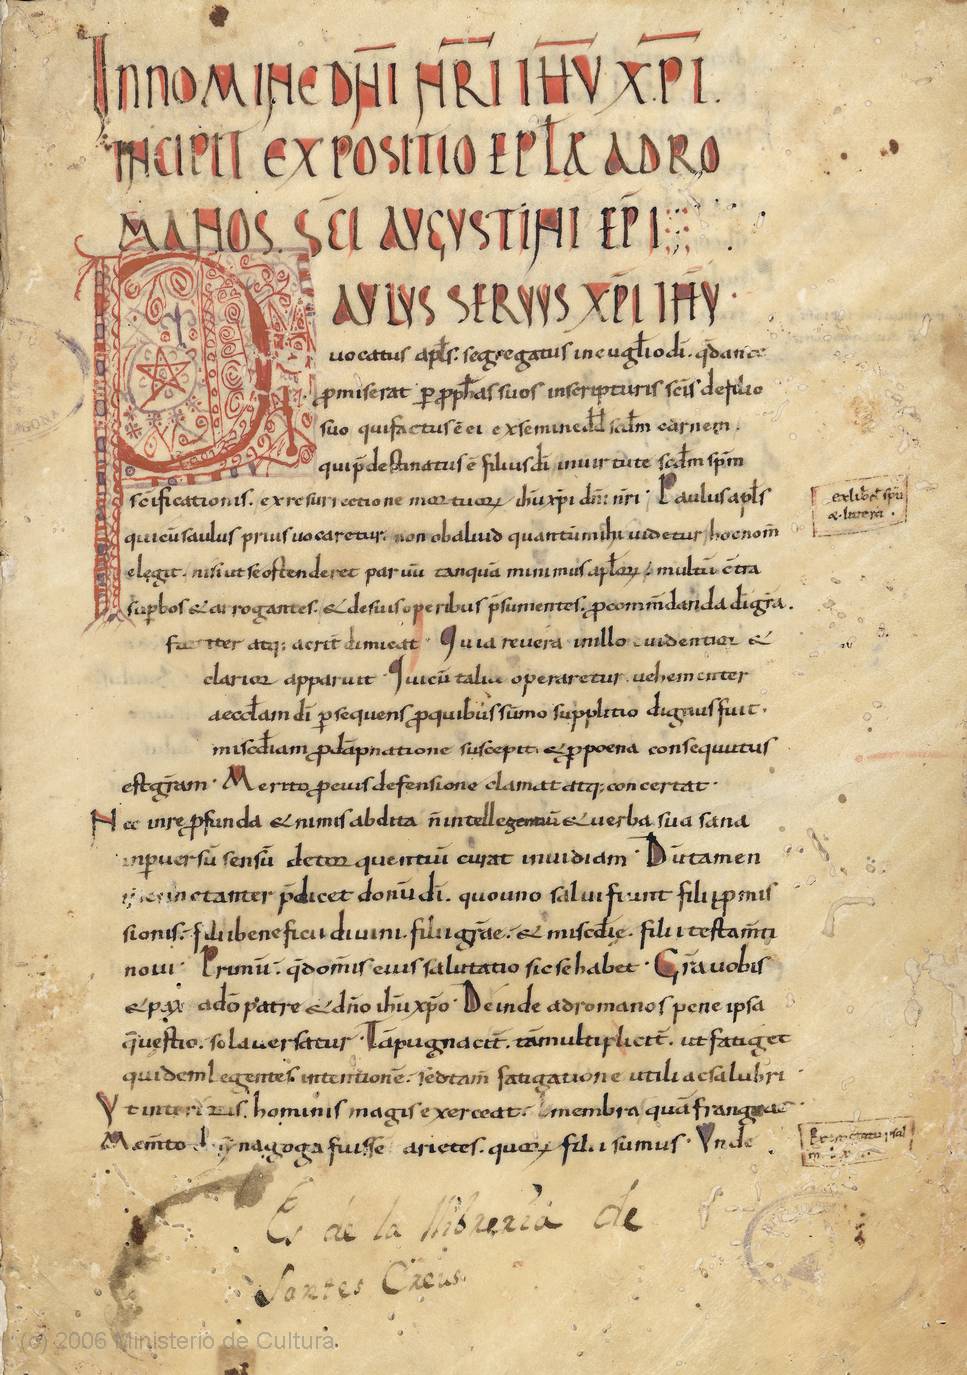 IN NOMINE DN̄I NR̄I IHV̄ XP̄I.
INCIPIT EXPOSITIO EPL̄A AD RO
MANOS. SC̄I AVGVSTINI EP̄I
PAVLVS SERVVS XP̄I IHV̄.
uocatus apl̄s. segregatus in euuglio dī. qđ ante
ꝓmiserat ꝑ ꝓph̄as suos in scripturis sc̄is de filio
suo qui factus ē ei ex semine dd̄ scđm carnem.
qui p̄destinatus ē filius dī in uirtute scđm spm̄
sc̄ificationis. ex resurrectione mortuoꝝ ihū xpī dn̄i nr̄i. Paulus apl̄s
qui cū saulus prius uocaretur. non ob aliud quantū mihi uidetur hoc nom̄
elegit. nisi ut se ostenderet paruū tanquā minimus apl̄oꝝ. multū c̄tra
supbos & arrogantes. & de suis operibus p̄sumentes. ꝓ commm̄danda dī gr̄a.
atq; acrit̄ dimicat. Quia reuera in illo euidentior &
clarior apparuit. Qui cū talia operaretur. uehementer
aecclam dī ꝑsequens ꝓ quibus sūmo supplitio dignus fuit.
misc̄diam ꝓ dāpnatione suscepit. & ꝓ poena consequutus
est gr̄am. Merito ꝓ eius defensione clamat atq; concertat.
Nec in re ꝓfunda & nimis abdita n̄ intellegentiū & uerba sua sana
in ꝑuersū sensū detorquentiū curat inuidiam. Dū tamen
incunctanter p̄dicet donū dī. quo uno salui fiunt filii ꝓmis
sionis. filii beneficii diuini. filii gr̄ae. & misc̄die. filii testam̄ti
noui. Primū. qđ om̄is eius salutatio sic se habet. Gr̄a uobis
& pax a dō patre & dn̄o ihū xpō. Deinde ad romanos pene ipsa
q̄uestio. sola uersatur. Tā pugnacit̄. tā multiplicit̄. ut fatiget
quidem legentes. intentionē. sed tam̄ fatigatione utili ac salubri
Vt interioris. hominis magis exerceat. membra quā frangeat.
Mem̄to synagoga fuisse arietes. quoꝝ filii sumus. Vnde
ex lib̄ d̄ spū
& litera.
Es de la llibreria de
Santes Creus.
(c) 2006 Ministerio de Cultura